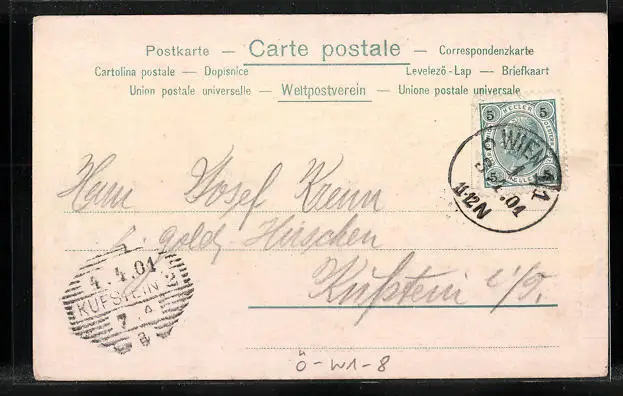 Postkarte — Carte postale — Correspondenzkarte
Cartolina postale — Dopisnice Levelező-Lap — Briefkaart
Union postale universelle — Weltpostverein — Unione postale universale
5 HELLER 5
5 HELLER 5
WIEN
01
11-12N
Herrn Josef
z. gold. Hirschen
Kufstein i/T.
4.4.01
KUFSTEIN
7
Ö-W1-8